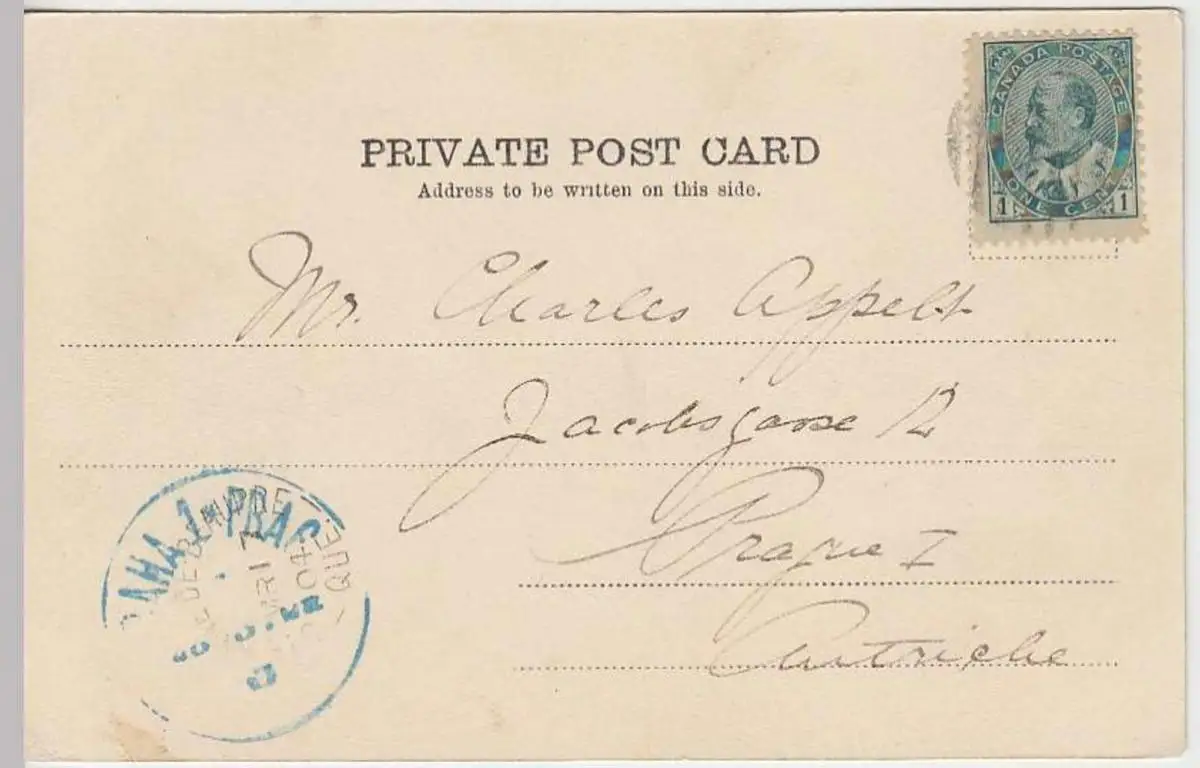 CANADA POSTAGE
1 ONE CENT 1
PRIVATE POST CARD
Address to be written on this side.
Mr. Charles Appelt
Jacobsgasse 12
Prague I
Autriche
PRAG
17
04
QUE